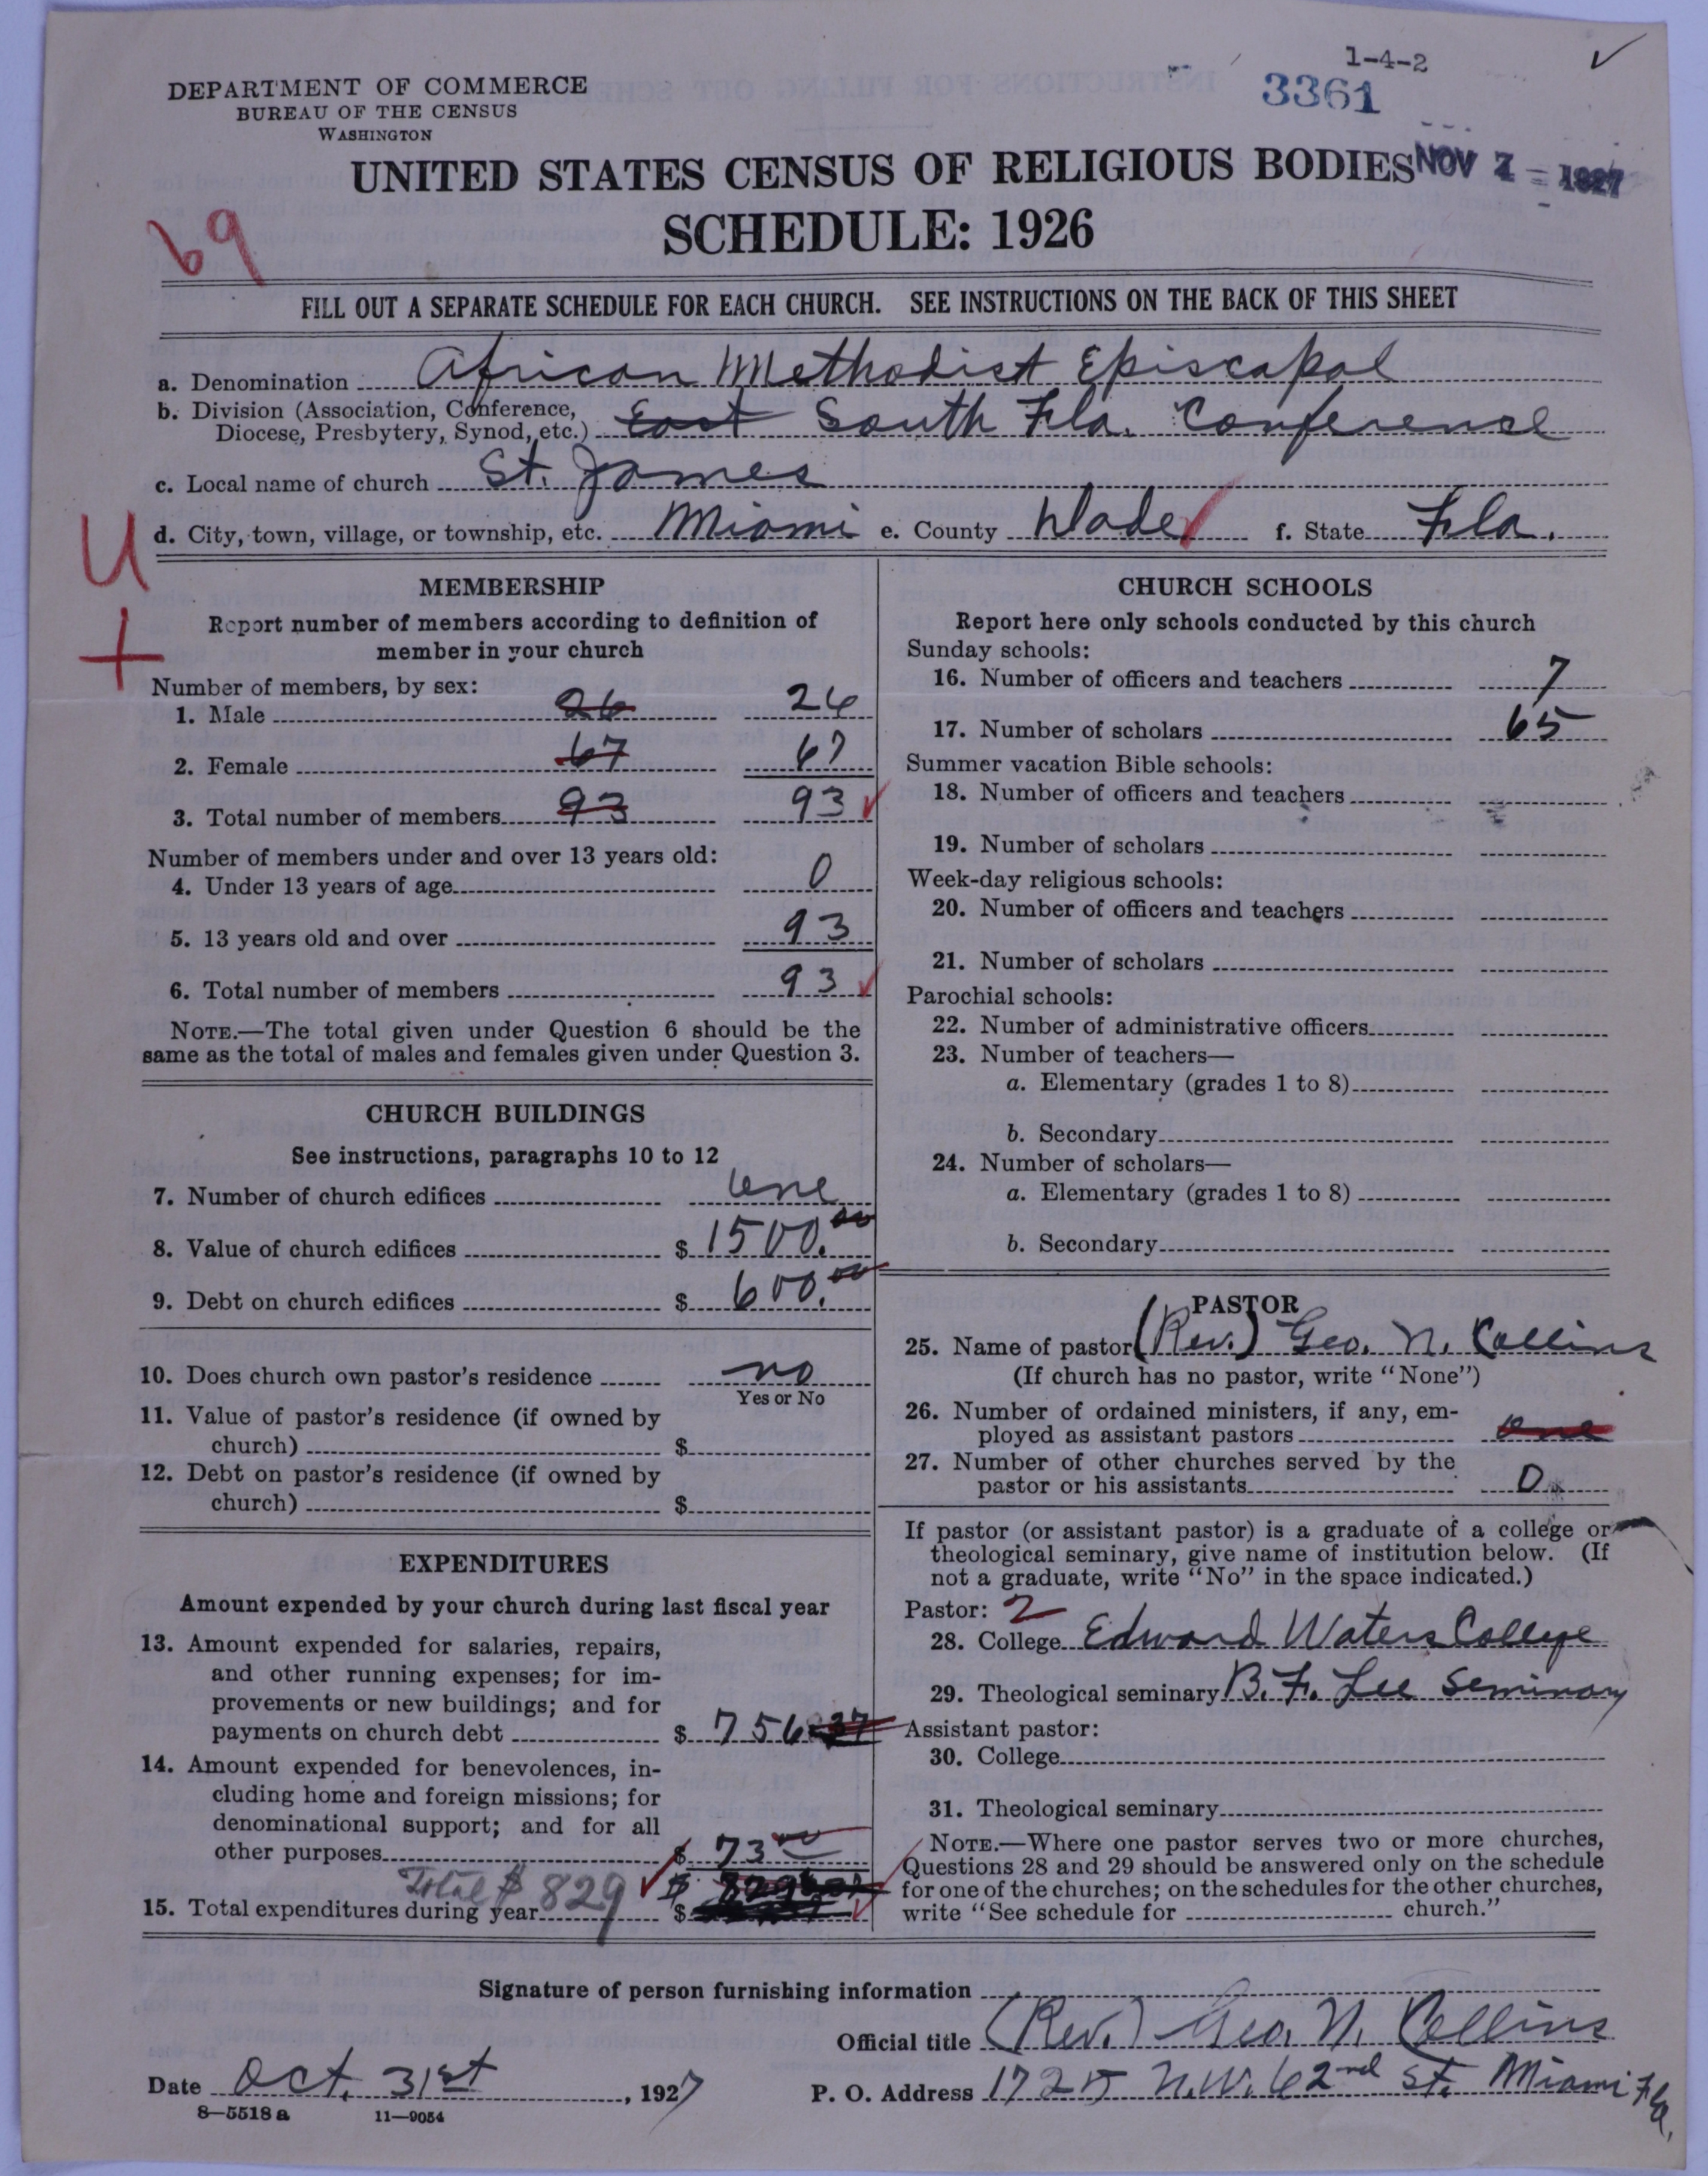 1-4-2
3361
DEPARTMENT OF COMMERCE
BUREAU OF THE CENSUS
WASHINGTON
UNITED STATES CENSUS OF RELIGIOUS BODIES
NOV 1927
SCHEDULE: 1926
69
FILL OUT A SEPARATE SCHEDULE FOR EACH CHURCH. SEE INSTRUCTIONS ON THE BACK OF THIS SHEET
a. Denomination African Methodist Episcopal
b. Division (Association, Conference,
Diocese, Presbytery, Synod, etc.) East South Fla. Conference
c. Local name of church St. James
d. City, town, village, or township, etc. Miami e. County Dade f. State Fla.
U
+
MEMBERSHIP
Report number of members according to definition of
member in your church
Number of members, by sex:
1. Male 26 26
2. Female 67 67
3. Total number of members 93 93
Number of members under and over 13 years old:
4. Under 13 years of age 0
5. 13 years old and over 93
6. Total number of members 93
NOTE.—The total given under Question 6 should be the
same as the total of males and females given under Question 3.
CHURCH BUILDINGS
See instructions, paragraphs 10 to 12
7. Number of church edifices one
8. Value of church edifices $ 1500.00
9. Debt on church edifices $ 600.00
10. Does church own pastor's residence no
Yes or No
11. Value of pastor's residence (if owned by
church) $
12. Debt on pastor's residence (if owned by
church) $
EXPENDITURES
Amount expended by your church during last fiscal year
13. Amount expended for salaries, repairs,
and other running expenses; for im-
provements or new buildings; and for
payments on church debt $ 756.37
14. Amount expended for benevolences, in-
cluding home and foreign missions; for
denominational support; and for all
other purposes $ 73
Total $ 829
15. Total expenditures during year $
CHURCH SCHOOLS
Report here only schools conducted by this church
Sunday schools:
16. Number of officers and teachers 7
17. Number of scholars 65
Summer vacation Bible schools:
18. Number of officers and teachers
19. Number of scholars
Week-day religious schools:
20. Number of officers and teachers
21. Number of scholars
Parochial schools:
22. Number of administrative officers
23. Number of teachers—
a. Elementary (grades 1 to 8)
b. Secondary
24. Number of scholars—
a. Elementary (grades 1 to 8)
b. Secondary
PASTOR
25. Name of pastor (Rev.) Geo. N. Collins
(If church has no pastor, write "None")
26. Number of ordained ministers, if any, em-
ployed as assistant pastors one
27. Number of other churches served by the
pastor or his assistants 0
If pastor (or assistant pastor) is a graduate of a college or
theological seminary, give name of institution below. (If
not a graduate, write "No" in the space indicated.)
Pastor: 2
28. College Edward Waters College
29. Theological seminary B. F. Lee Seminary
Assistant pastor:
30. College
31. Theological seminary
NOTE.—Where one pastor serves two or more churches,
Questions 28 and 29 should be answered only on the schedule
for one of the churches; on the schedules for the other churches,
write "See schedule for church."
Signature of person furnishing information
Official title (Rev.) Geo. N. Collins
Date Oct. 31st, 1927
P. O. Address 1725 N.W. 62nd St. Miami Fla.
8—5518 a 11—9054